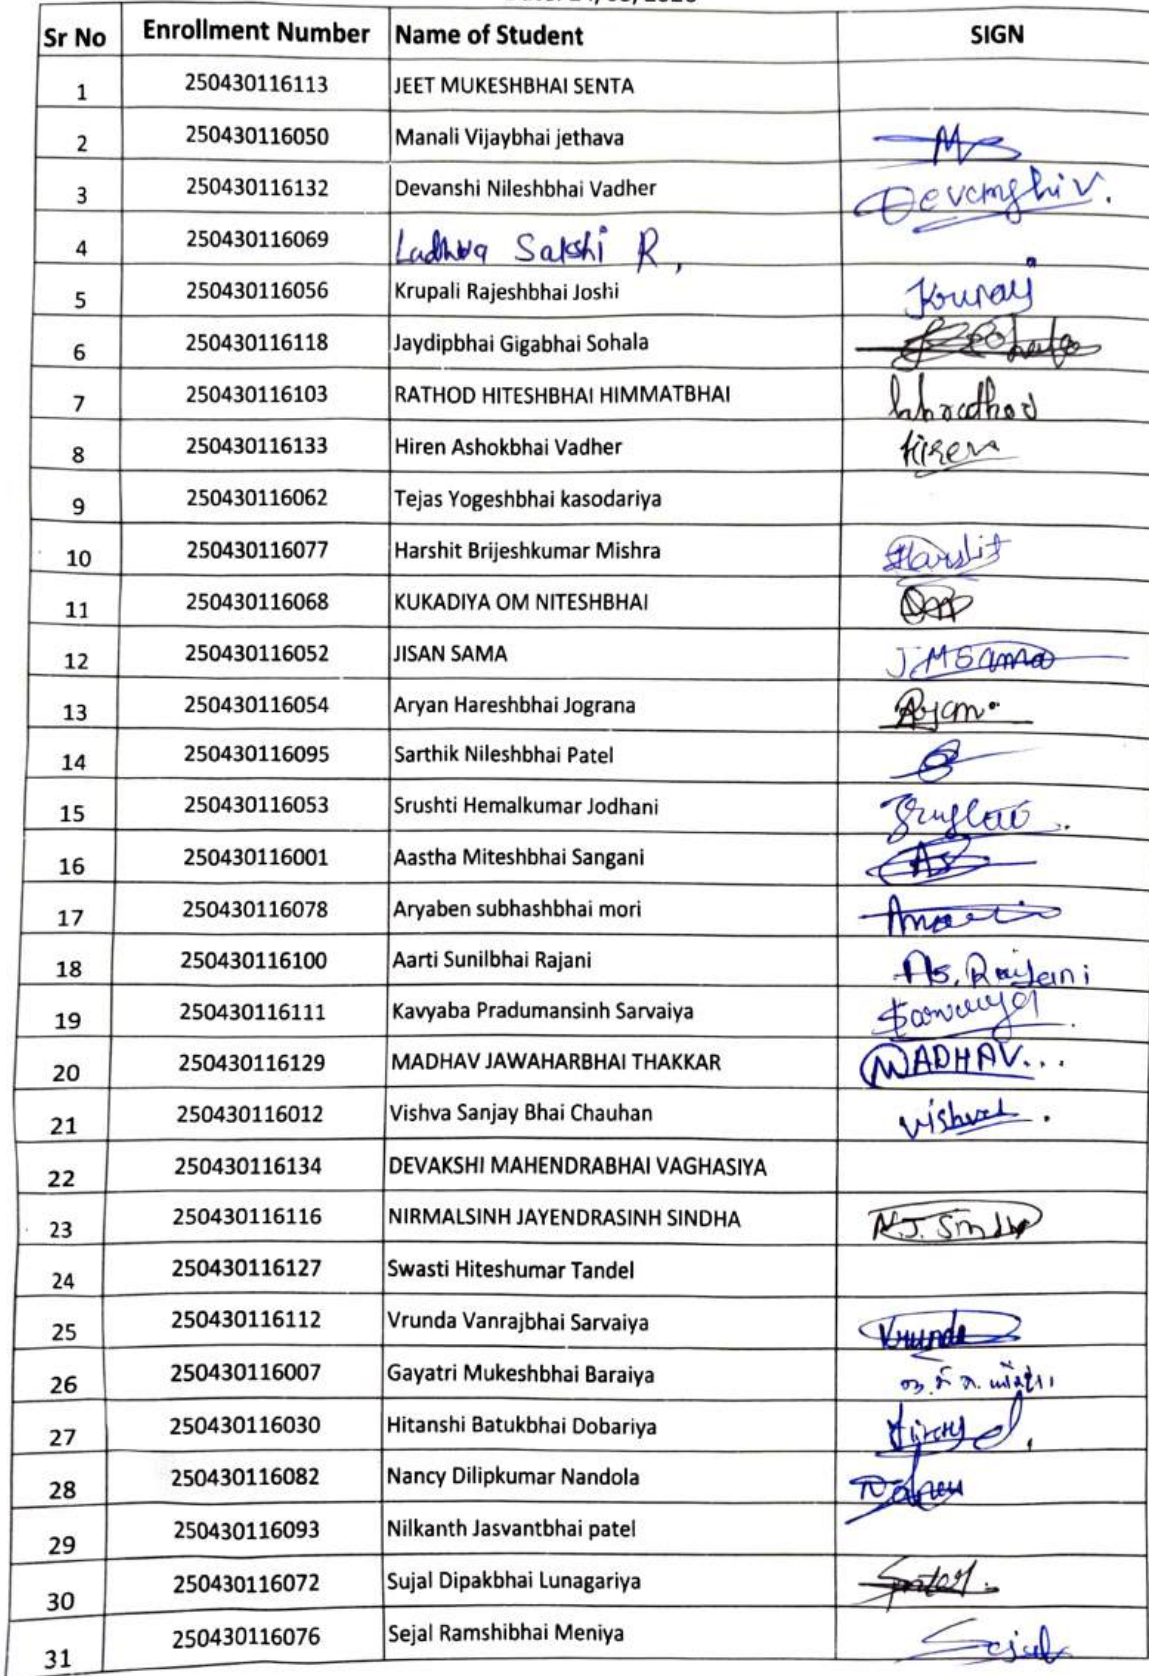 Sr No Enrollment Number Name of Student SIGN
1 250430116113 JEET MUKESHBHAI SENTA
2 250430116050 Manali Vijaybhai jethava
3 250430116132 Devanshi Nileshbhai Vadher Devanshi V.
4 250430116069 Ladhva Sakshi R,
5 250430116056 Krupali Rajeshbhai Joshi
6 250430116118 Jaydipbhai Gigabhai Sohala
7 250430116103 RATHOD HITESHBHAI HIMMATBHAI
8 250430116133 Hiren Ashokbhai Vadher Hiren
9 250430116062 Tejas Yogeshbhai kasodariya
10 250430116077 Harshit Brijeshkumar Mishra Harshit
11 250430116068 KUKADIYA OM NITESHBHAI
12 250430116052 JISAN SAMA J M Sama
13 250430116054 Aryan Hareshbhai Jograna
14 250430116095 Sarthik Nileshbhai Patel
15 250430116053 Srushti Hemalkumar Jodhani
16 250430116001 Aastha Miteshbhai Sangani As
17 250430116078 Aryaben subhashbhai mori
18 250430116100 Aarti Sunilbhai Rajani As. Rajani
19 250430116111 Kavyaba Pradumansinh Sarvaiya
20 250430116129 MADHAV JAWAHARBHAI THAKKAR MADHAV...
21 250430116012 Vishva Sanjay Bhai Chauhan Vishva.
22 250430116134 DEVAKSHI MAHENDRABHAI VAGHASIYA
23 250430116116 NIRMALSINH JAYENDRASINH SINDHA N.J. Sindha
24 250430116127 Swasti Hiteshumar Tandel
25 250430116112 Vrunda Vanrajbhai Sarvaiya Vrunda
26 250430116007 Gayatri Mukeshbhai Baraiya
27 250430116030 Hitanshi Batukbhai Dobariya
28 250430116082 Nancy Dilipkumar Nandola
29 250430116093 Nilkanth Jasvantbhai patel
30 250430116072 Sujal Dipakbhai Lunagariya
31 250430116076 Sejal Ramshibhai Meniya Sejal